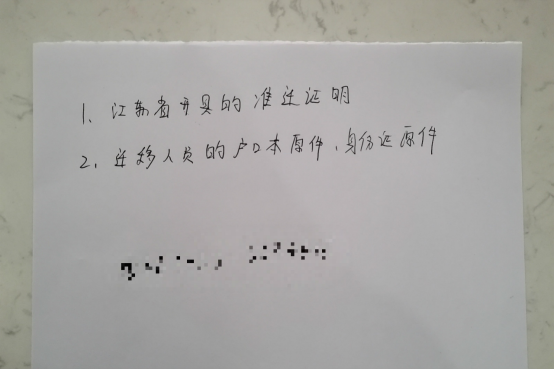 1、江苏省开具的准迁证明
2、迁移人员的户口本原件、身份证原件